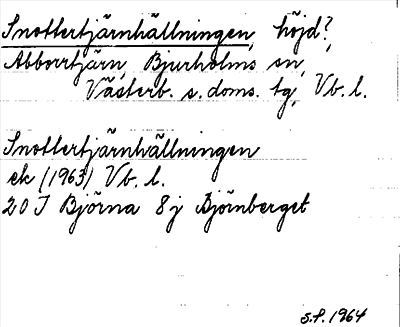 Snottertjärnhällningen, höjd?,
Abborrtjärn, Bjurholms sn,
Västerb. s. doms. tg, Vb. l.
Snottertjärnhällningen
ek (1963) Vb. l.
20 J Björna 8 j Björnberget
S.P. 1964